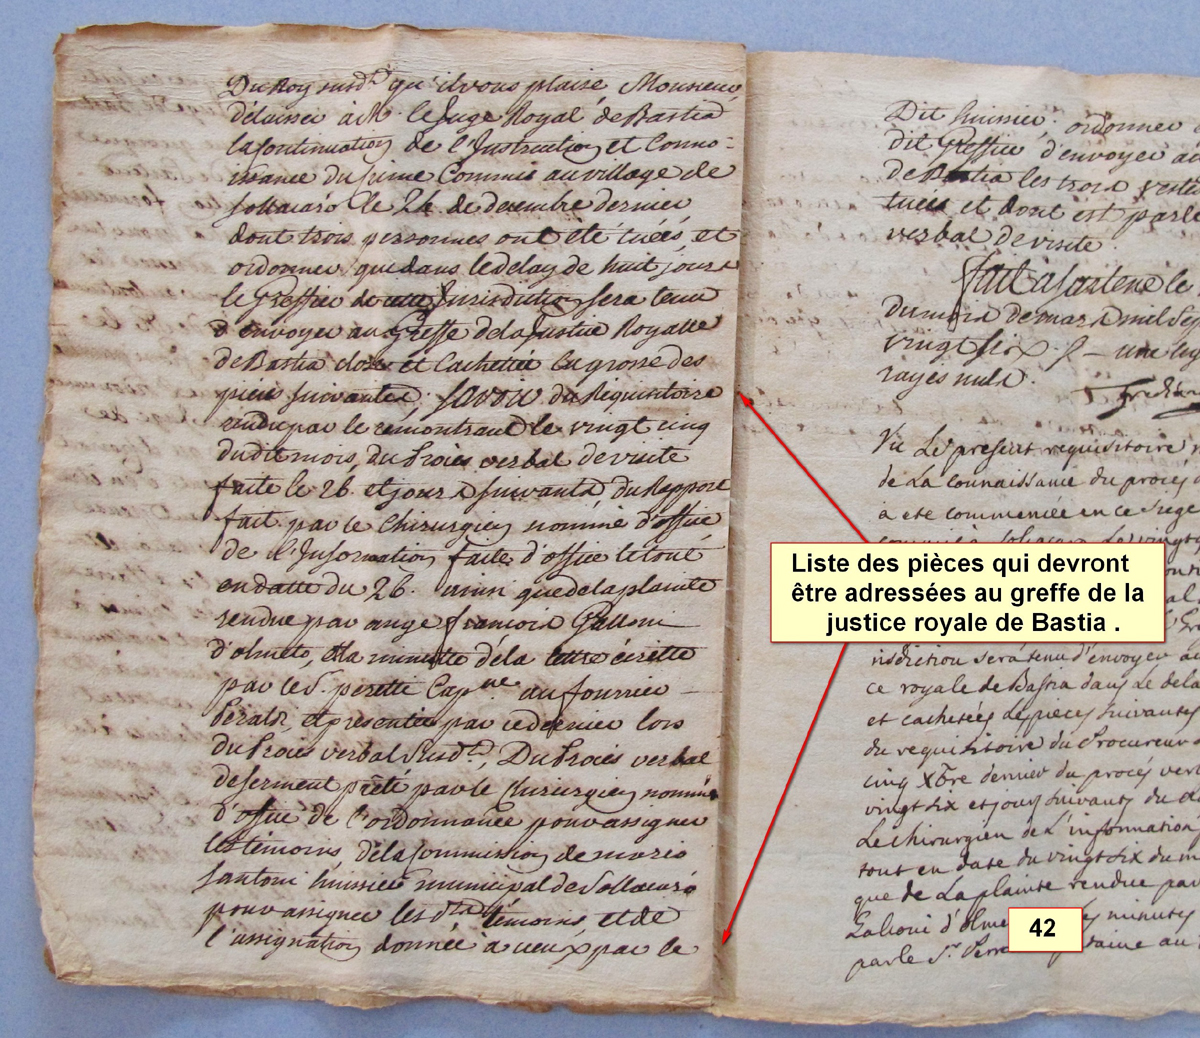 Du Roy susd.t qu'il vous plaise, Monsieur,
délaisser à M. le Juge Royal de Bastia
la continuation de l'Instruction et Conno-
issance du crime Commis au village de
Sollacaro le 24 de decembre dernier
dont trois personnes ont été tuées, et
ordonner que dans le delay de huit jours
le Greffier de cette Jurisdiction sera tenu
d'envoyer au Greffe de la Justice Royalle
de Bastia close et Cachettée la grosse des
pieces suivantes, Savoir du Requisitoire
rendu par le remontrant le vingt cinq
du dit mois, du Procès verbal de visite
faite le 26. et jours suivants du Rapport
fait par le Chirurgien nommé d'office
de l'Information faite d'office le tout
en datte du 26. ainsi que de la plainte
rendue par ange françois Galloni
d'olmeto, et la minutte de la lettre écritte
par le S. peretti Cap.ne au fourrier
Peraldi, et presentée par ce dernier lors
du Procès verbal Susd.t, Du Procès verbal
de serment prêté par le Chirurgien nommé
d'office de l'ordonnance pour assigner
les témoins, de la Commission de
Santoni huissier municipal de Sollacaro
pour assigner les d.ts témoins, et de
l'assignation donnée à ceux par le
Dit huissier. ordonner
dit Greffier d'envoyer au
de Bastia les trois
tuées et dont est parlé
verbal de visite
fait a Sartene le
du mois de mars mil sep
vingt six. une lig
rayés nuls.
Vu Le present requisitoire
de La connaissance du procés
a eté commencée en ce siege
Liste des pièces qui devront
être adressées au greffe de la
justice royale de Bastia .
risdiction sera tenu d'envoyer au
ce royale de Bastia dans Le dela
et cachetées les pieces suivantes
du requisitoire du Procureur
cinq Xbre dernier du procés ver
vingt six et jours suivants du
Le chirurgien de L'information
tout en date du vingt six du m
que de La plainte rendue par
Galloni d'olme minutes
par le S.r Perr taine au
42